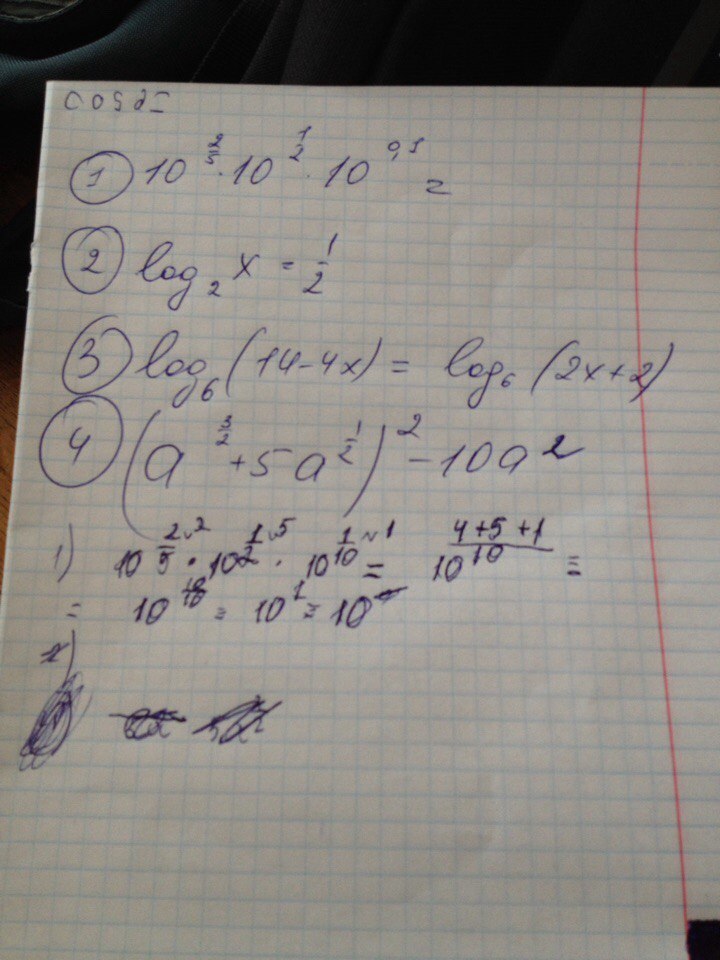 ① 10^(2/5) · 10^(1/2) · 10^(0,1) =
② log₂ x = 1/2
③ log₆ (14-4x) = log₆ (2x+2)
④ (a^(3/2) + 5a^(1/2))² - 10a²
1) 10^(2/5 \2) · 10^(1/2 \5) · 10^(1/10 \1) = 10^((4+5+1)/10) =
= 10^(10/10) = 10¹ = 10
2)